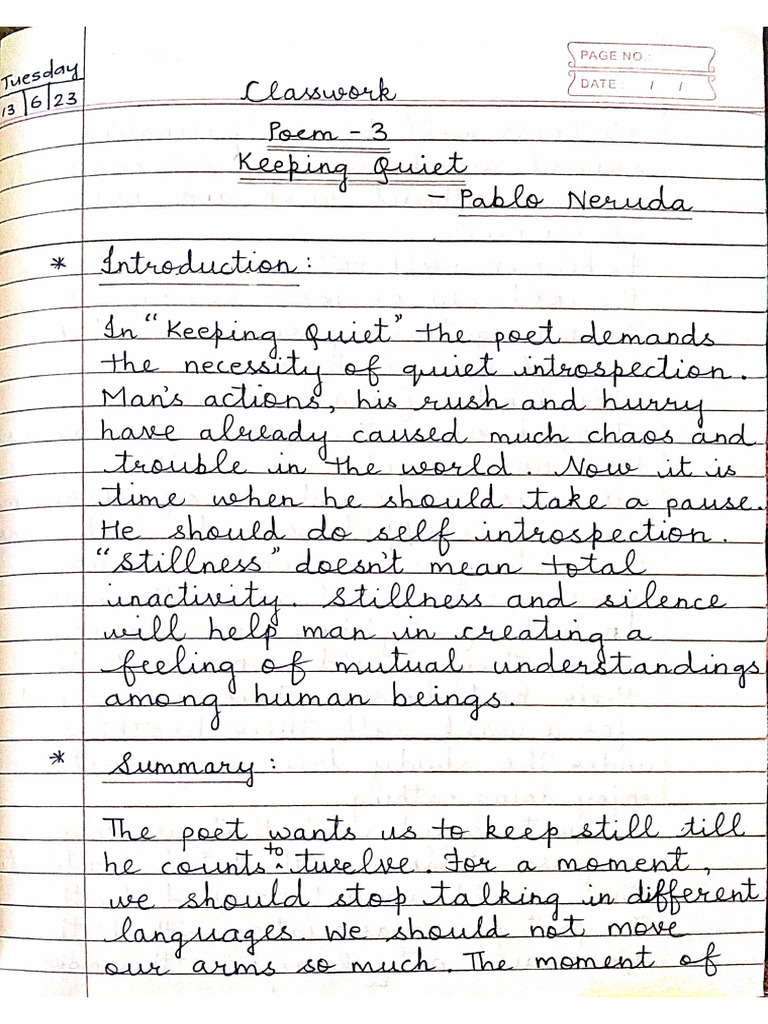 Tuesday
13/6/23
PAGE NO.:
DATE: / /
Classwork
Poem - 3
Keeping Quiet
- Pablo Neruda
* Introduction :
In "Keeping Quiet" the poet demands
the necessity of quiet introspection.
Man's actions, his rush and hurry
have already caused much chaos and
trouble in the world. Now it is
time when he should take a pause.
He should do self introspection.
"Stillness" doesn't mean total
inactivity. Stillness and silence
will help man in creating a
feeling of mutual understandings
among human beings.
* Summary :
The poet wants us to keep still till
he counts to twelve. For a moment,
we should stop talking in different
languages. We should not move
our arms so much. The moment of